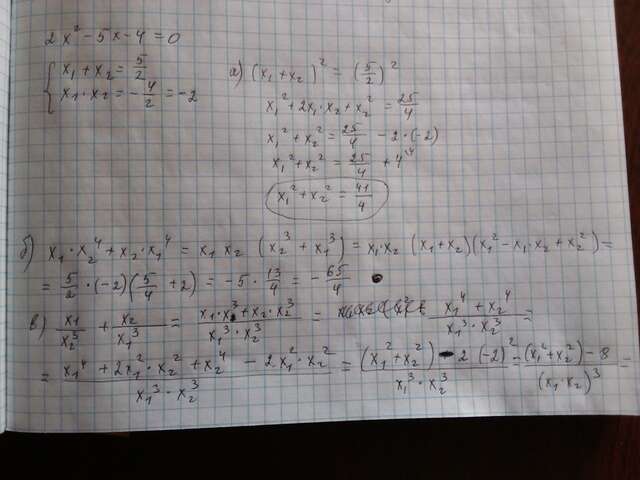 2x² - 5x - 4 = 0
{ x₁ + x₂ = 5/2
x₁ · x₂ = -4/2 = -2
а) (x₁ + x₂)² = (5/2)²
x₁² + 2x₁ · x₂ + x₂² = 25/4
x₁² + x₂² = 25/4 - 2 · (-2)
x₁² + x₂² = 25/4 + 4
x₁² + x₂² = 41/4
б) x₁ · x₂⁴ + x₂ · x₁⁴ = x₁ x₂ (x₂³ + x₁³) = x₁ · x₂ (x₁ + x₂)(x₁² - x₁ · x₂ + x₂²) =
= 5/2 · (-2)(5/4 + 2) = -5 · 13/4 = -65/4
в) x₁/x₂³ + x₂/x₁³ = x₁ · x₁³ + x₂ · x₂³/x₁³ · x₂³ = x₁⁴ + x₂⁴/x₁³ · x₂³ =
= x₁⁴ + 2x₁² · x₂² + x₂⁴ - 2x₁² · x₂²/x₁³ · x₂³ = (x₁² + x₂²) - 2 (-2)²/x₁³ · x₂³ = (x₁² + x₂²) - 8/(x₁ · x₂)³ =